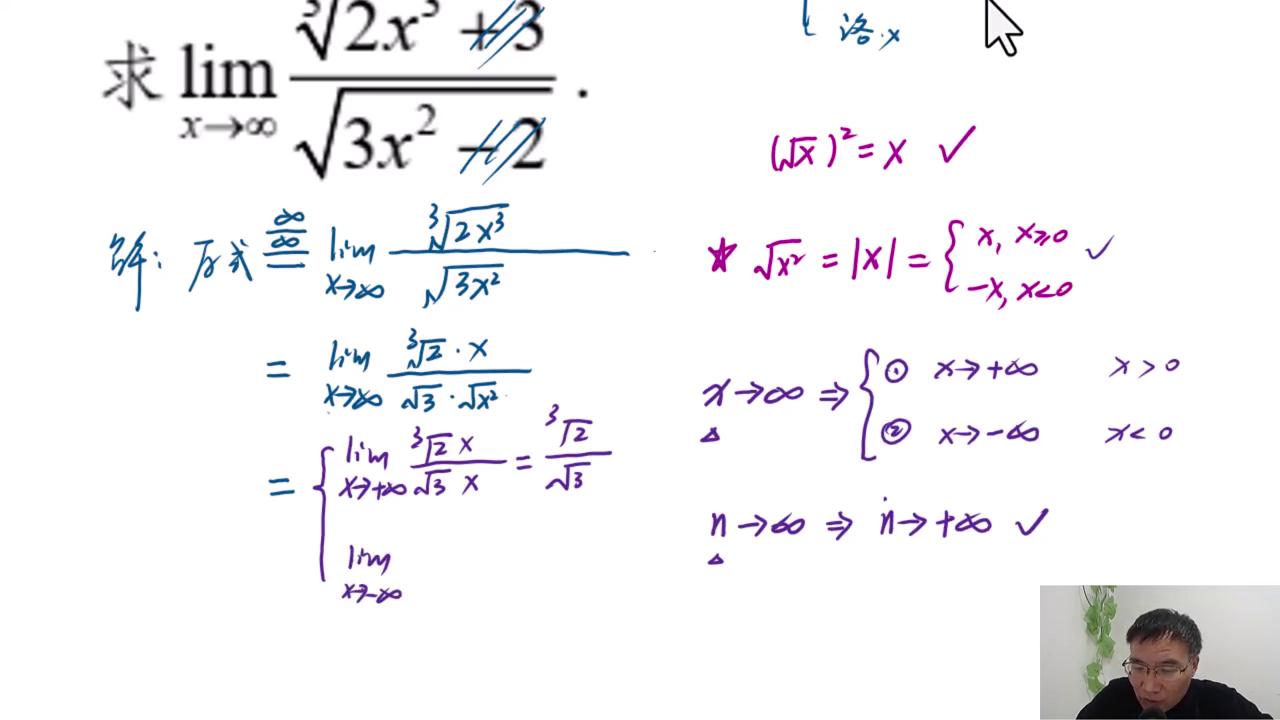 求 lim x→∞ ∛(2x³ + 3) / √(3x² − 2) .
洛.x
(√x)² = x ✓
解: 原式 =(∞/∞) lim x→∞ ∛(2x³) / √(3x²)
= lim x→∞ ∛2 · x / √3 · √x²
= { lim x→+∞ ∛2 x / √3 x = ∛2 / √3
lim x→-∞
★ √x² = |x| = { x, x≥0 ✓
-x, x<0
x→∞ ⇒ { ① x→+∞ x>0
② x→-∞ x<0
n→∞ ⇒ n→+∞ ✓